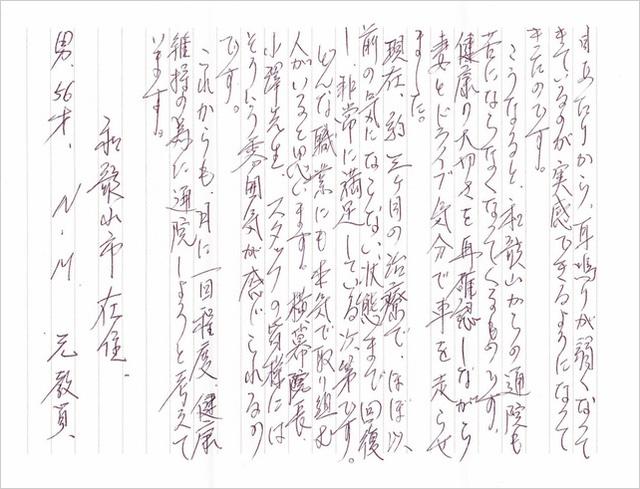 目あたりから、耳鳴りが弱くなって
きているのが実感できるようになって
きたのです。
こうなると、和歌山からの通院も
苦にならなくなってくるものです。
健康の大切さを再確認しながら
妻とドライブ気分で車を走らせ
ました。
現在、約三ヶ月の治療で、ほぼ以
前の気にならない状態まで回復
し、非常に満足している次第です。
どんな職業にも本気で取り組む
人がいると思います。横幕院長、
小澤先生、スタッフの皆様には
そういう雰囲気が感じられるの
です。
これからも、月に一回程度、健康
維持の為に通院しようと考えて
います。
和歌山市在住
男、56才、N.M 元教員、